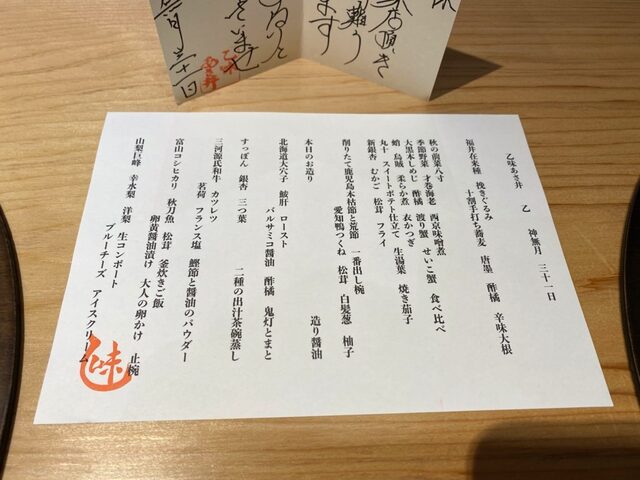 来店頂き
難う
ます
乙味あさ井　乙　神無月　三十一日
福井在来種　挽きぐるみ
十割手打ち蕎麦　唐墨　酢橘　辛味大根
秋の前菜八寸
季節野菜　才巻海老　西京味噌煮
大黒本しめじ　酢橘　渡り蟹　せいこ蟹　食べ比べ
蛤　烏賊　柔らか煮　衣かつぎ
丸十　スイートポテト仕立て　生湯葉　焼き茄子
新銀杏　むかご　松茸　フライ
削りたて鹿児島本枯節と荒節　一番出し椀
愛知鴨つくね　松茸　白髪葱　柚子
本日のお造り　造り醤油
北海道大穴子　鮟肝　ロースト
バルサミコ醤油　酢橘　鬼灯とまと
すっぽん　銀杏　三つ葉　二種の出汁茶碗蒸し
三河源氏和牛　カツレツ
茗荷　フランス塩　鰹節と醤油のパウダー
富山コシヒカリ　秋刀魚　松茸　釜炊きご飯
卵黄醤油漬け　大人の卵かけ　止椀
山梨巨峰　幸水梨　洋梨　生コンポート
ブルーチーズ　アイスクリーム
味